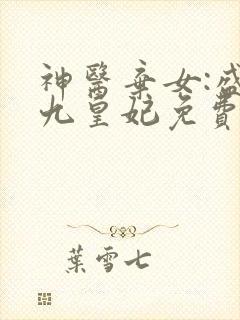 神醫棄女:盛
九皇妃免費
葉雪七